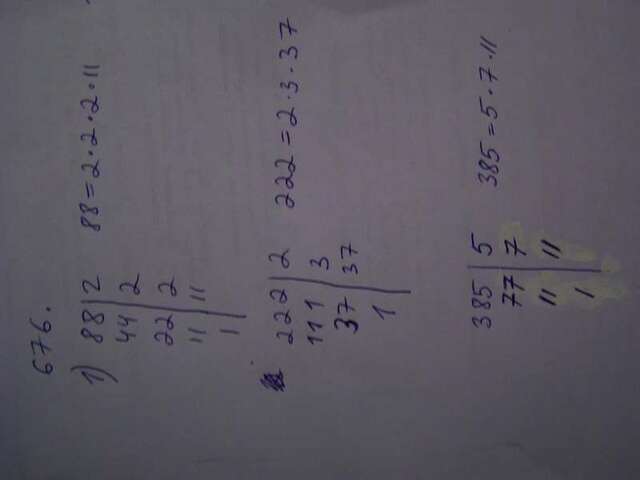 676.
1) 88 | 2 88 = 2 · 2 · 2 · 11
44 | 2
22 | 2
11 | 11
1
222 | 2 222 = 2 · 3 · 37
111 | 3
37 | 37
1
385 | 5 385 = 5 · 7 · 11
77 | 7
11 | 11
1